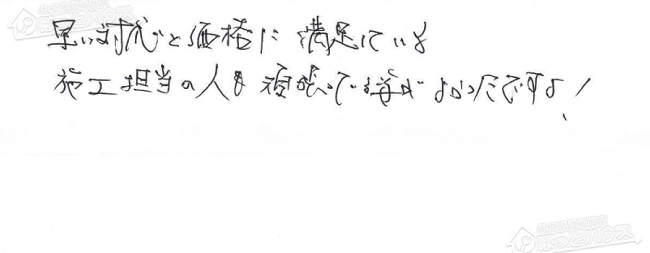 早い対応と価格に満足している
施工担当の人も頑張っている姿がよかったですよ！